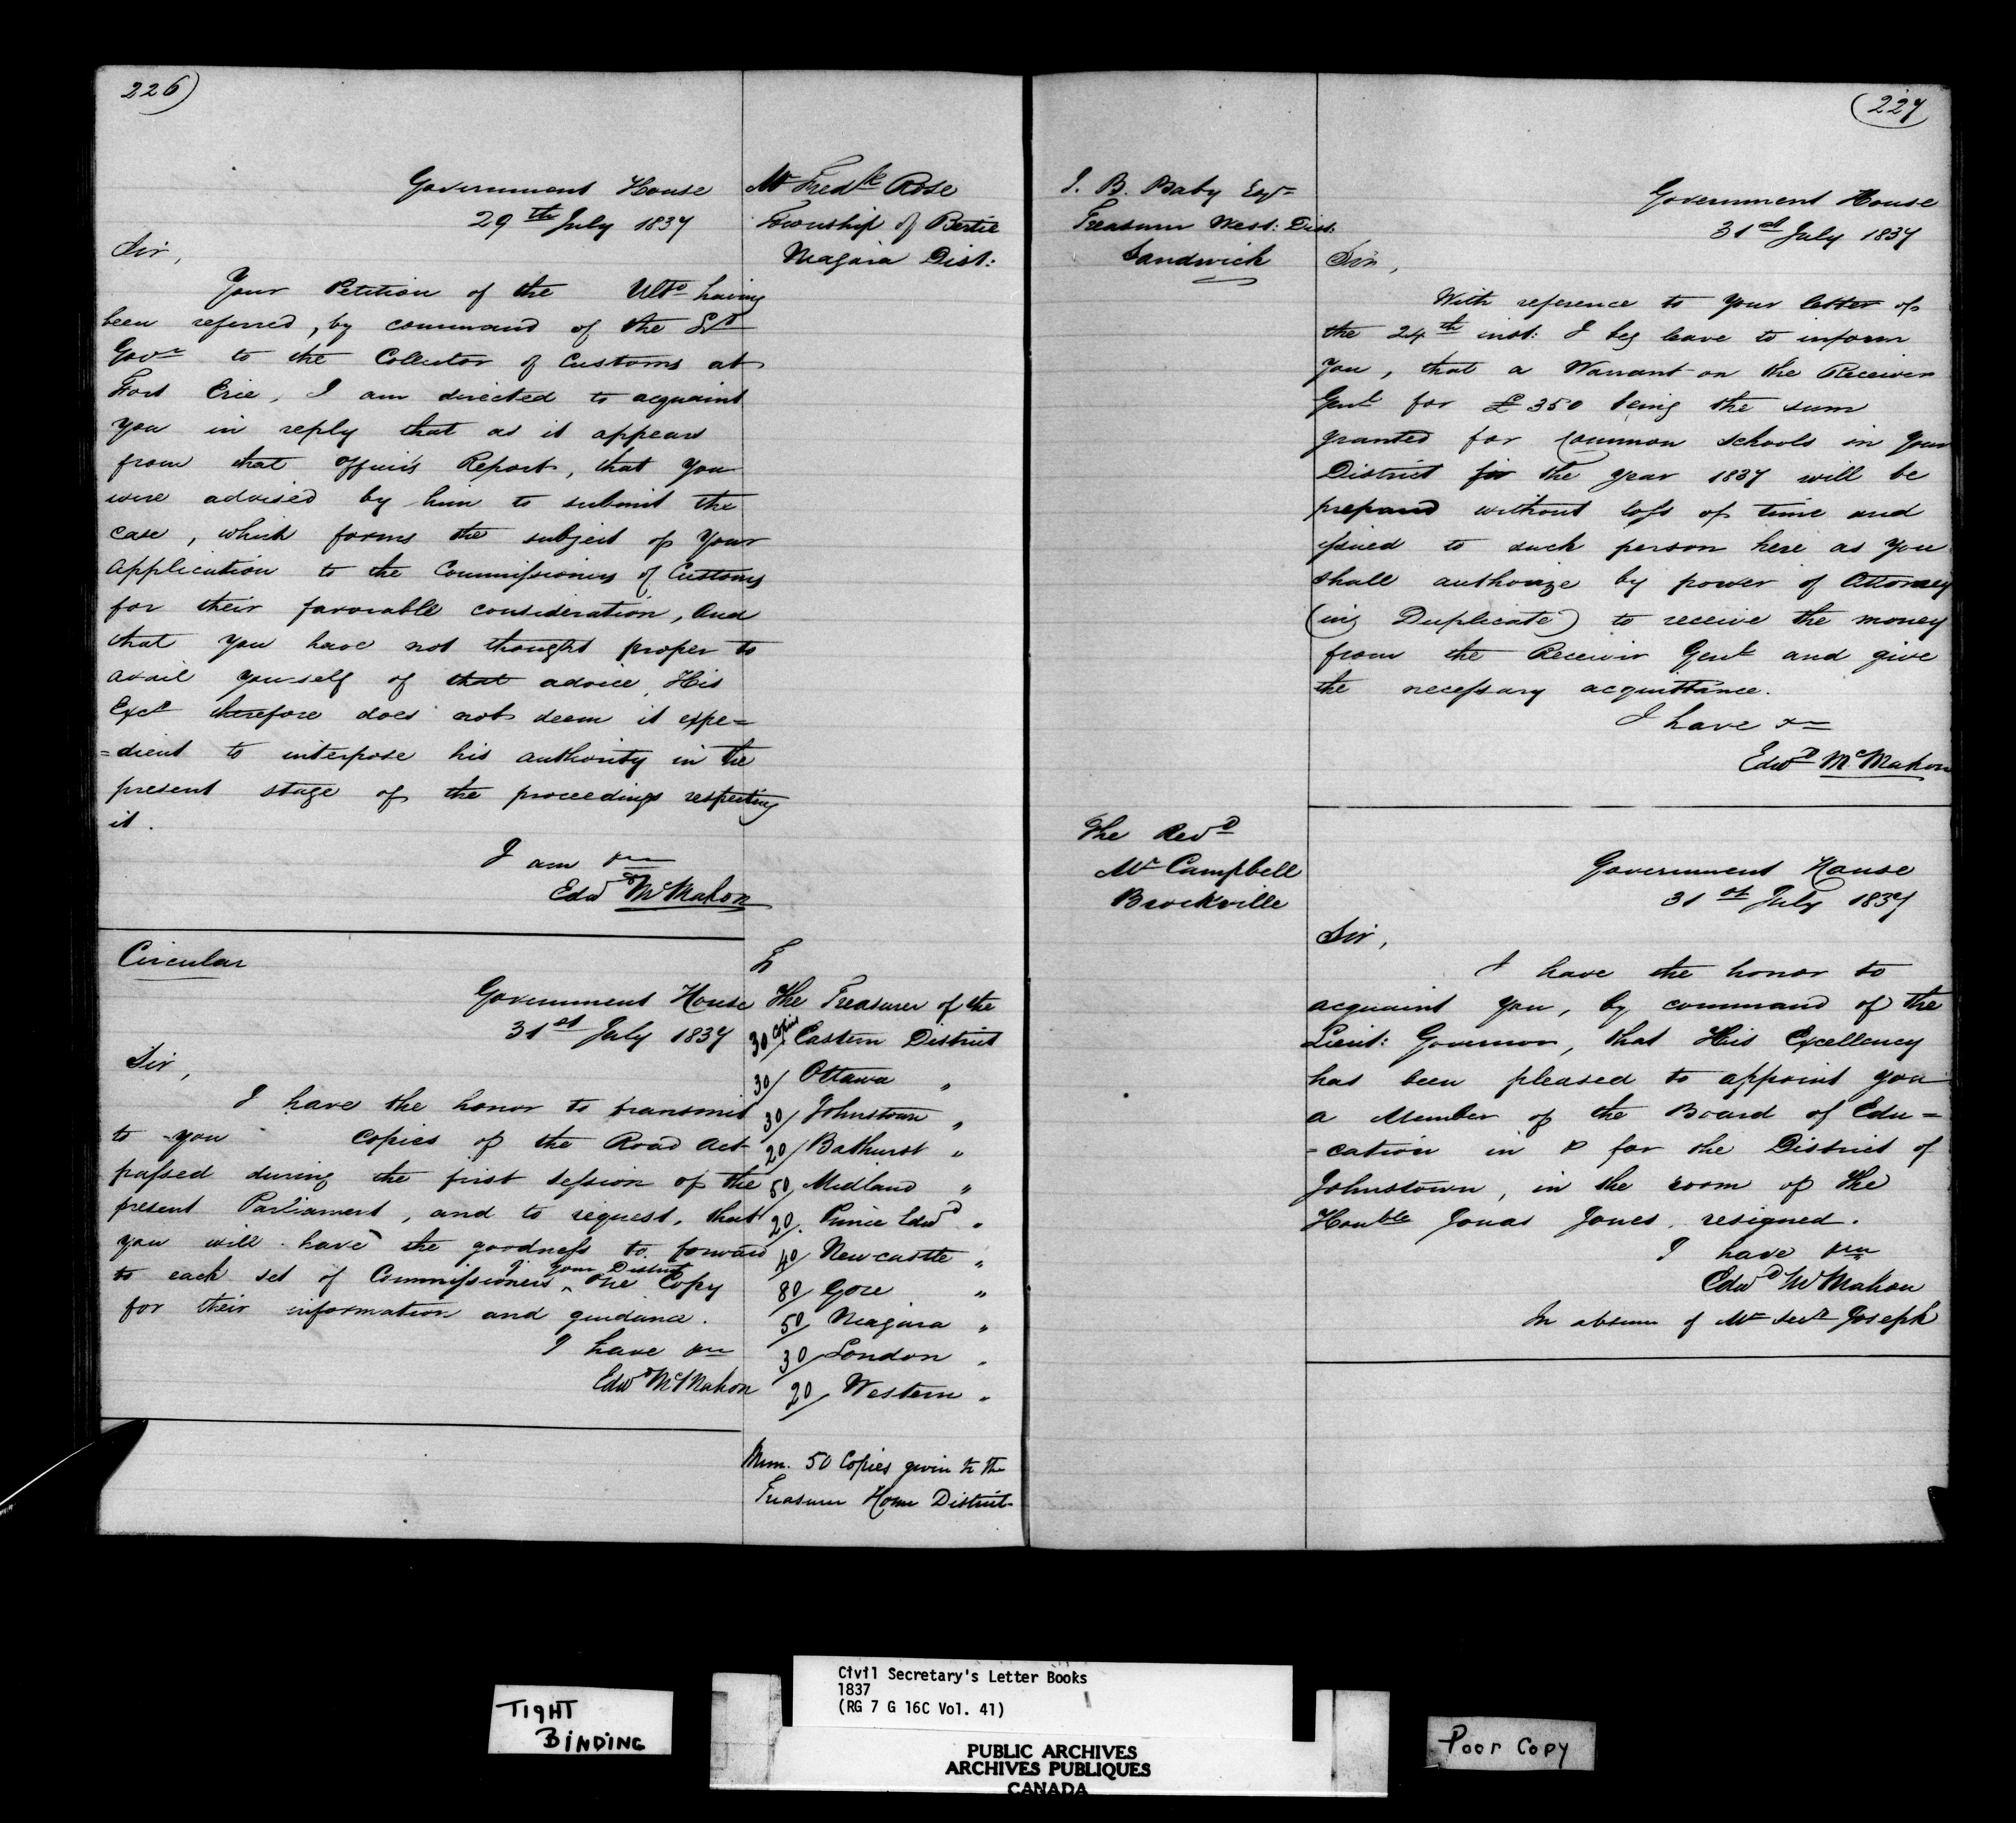 226)
Government House
29th July 1837
Mr Fredk Rose
Township of Bertie
Niagara Dist:
Sir,
Your Petition of the Ulto having
been referred, by command of the Lt
Govr to the Collector of Customs at
Fort Erie, I am directed to acquaint
you in reply that as it appears
from that Officer's Report, that you
were advised by him to submit the
case, which forms the subject of your
application to the Commissioners of Customs
for their favorable consideration, and
that you have not thought proper to
avail yourself of that advice, His
Excy therefore does not deem it expe=
=dient to interpose his authority in the
present stage of the proceedings respecting
it.
I am &c
Edwd McMahon
Circular
Government House
31st July 1837
Sir,
I have the honor to transmit
to you copies of the Road Act
passed during the first Session of the
present Parliament, and to request, that
you will have the goodness to forward
to each set of Commissioners in your District one Copy
for their information and guidance.
I have &c
Edwd McMahon
To
The Treasurer of the
30 Copies Eastern District
30/ Ottawa "
30/ Johnstown "
20/ Bathurst "
50/ Midland "
20/ Prince Edwd "
40/ Newcastle "
80/ Gore "
50/ Niagara "
30/ London "
20/ Western "
Mem. 50 Copies given to the
Treasurer Home District
227
J. B. Baby Esqr
Treasurer West: Dist:
Sandwich
Government House
31st July 1837
Sir,
With reference to your letter of
the 24th inst: I beg leave to inform
you, that a Warrant on the Receiver
Genl for £350 being the sum
granted for Common Schools in your
District for the year 1837 will be
prepared without loss of time and
issued to such person here as you
shall authorize by power of Attorney
(in Duplicate) to receive the money
from the Receiver Genl and give
the necessary acquittance.
I have &c
Edwd McMahon
The Revd
Mr Campbell
Brockville
Government House
31st July 1837
Sir,
I have the honor to
acquaint you, by command of the
Lieut: Governor, that His Excellency
has been pleased to appoint you
a Member of the Board of Edu=
=cation in & for the District of
Johnstown, in the room of the
Honble Jonas Jones, resigned.
I have &c
Edwd McMahon
In absence of Mr Secy Joseph
TIGHT
BINDING
Civil Secretary's Letter Books
1837
(RG 7 G 16C Vol. 41)
PUBLIC ARCHIVES
ARCHIVES PUBLIQUES
CANADA
Poor Copy